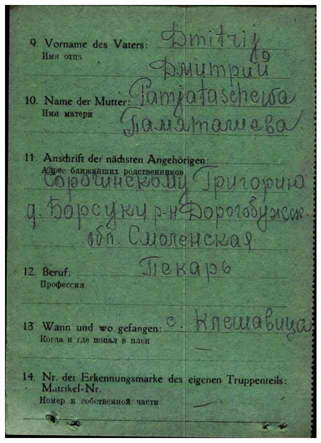 9. Vorname des Vaters: Dmitrij
Имя отца Дмитрий
10. Name der Mutter: Pamjataschewa
Имя матери Памяташева
11. Anschrift der nächsten Angehörigen:
Адрес ближайших родственников
Сорочинскому Григорию
д. Борсуки р-н Дорогобужск.
обл. Смоленская
12. Beruf: Пекарь
Профессия
13. Wann und wo gefangen: с. Клешавица
Когда и где попал в плен
14. Nr. der Erkennungsmarke des eigenen Truppenteils:
Matrikel-Nr.
Номер в собственной части —